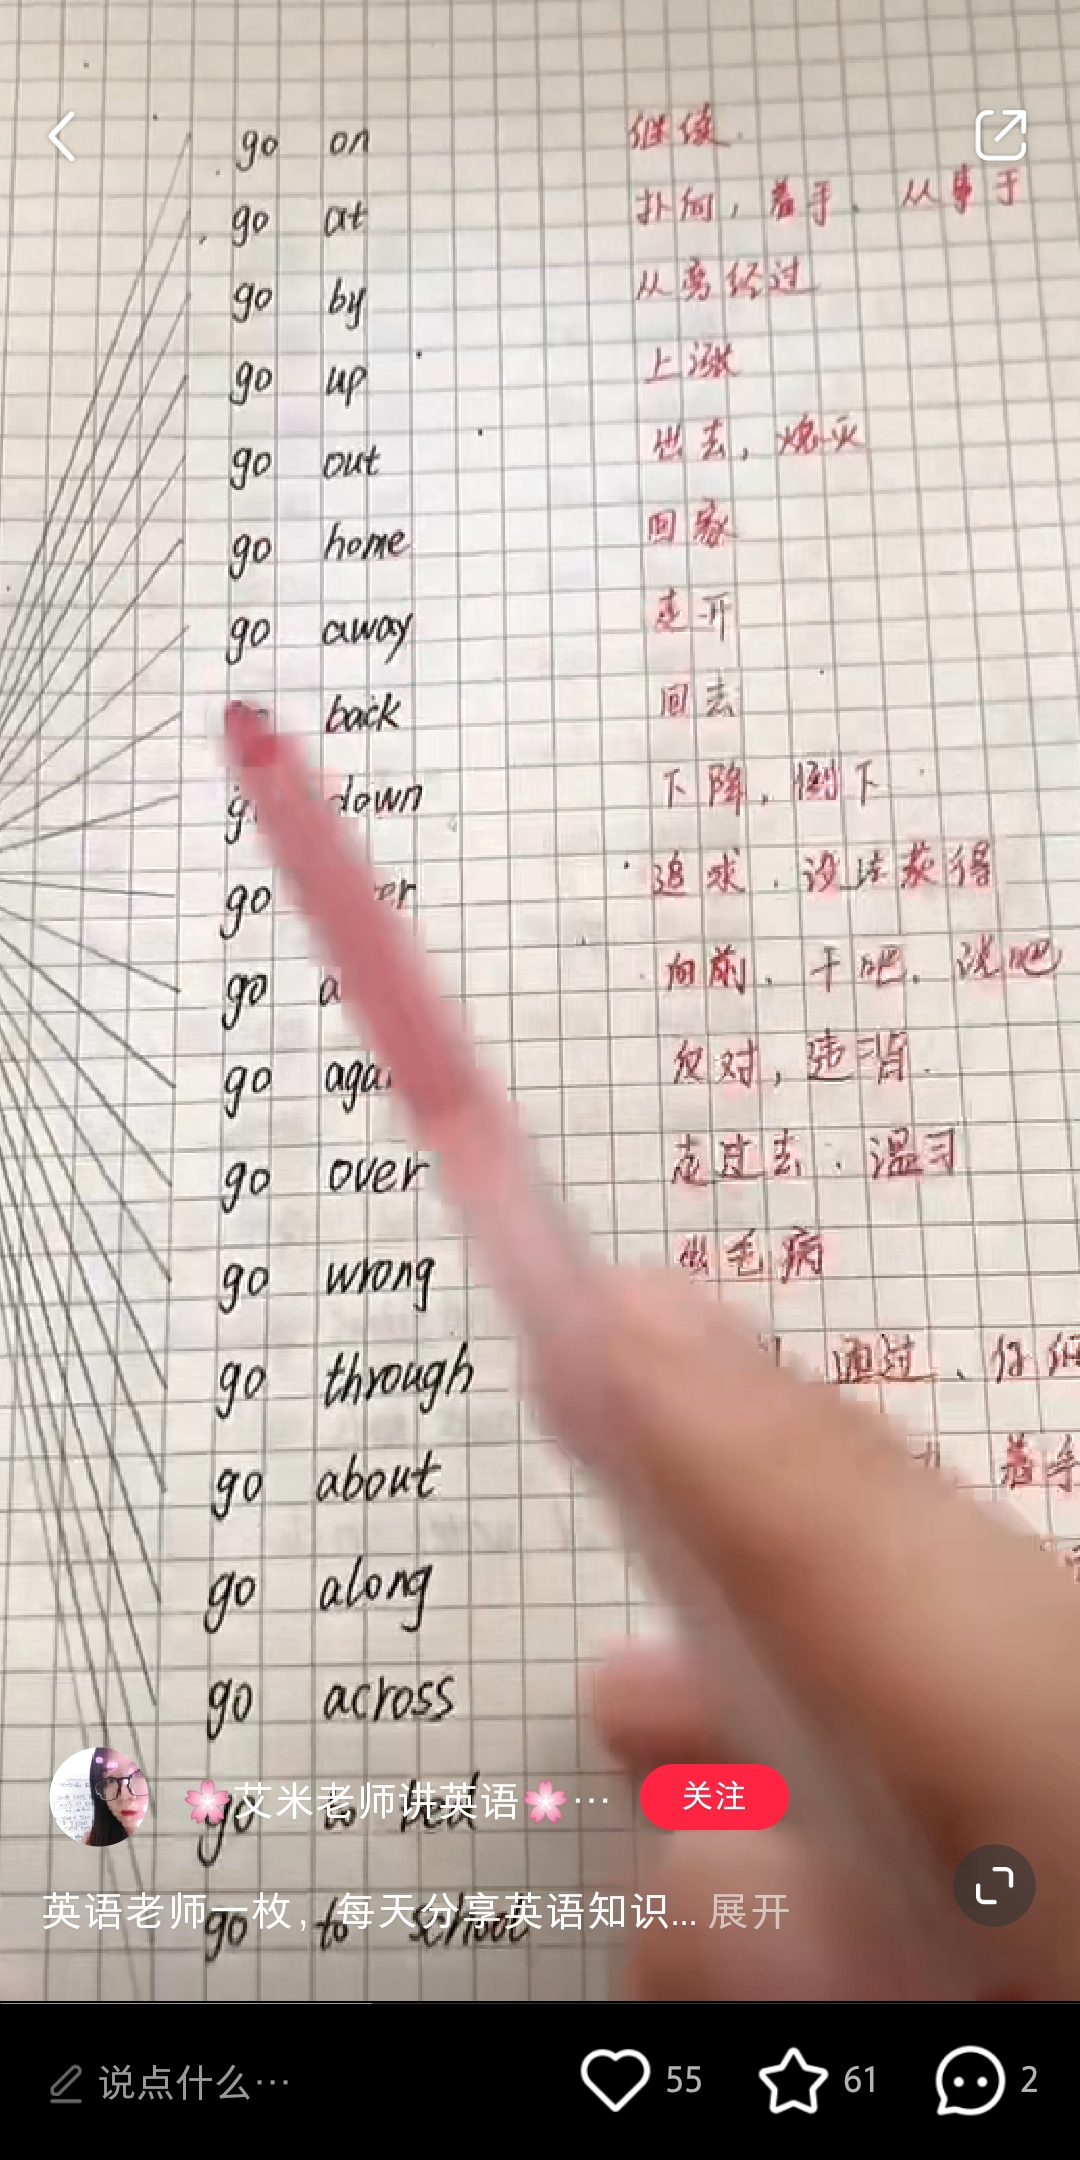 go on 继续
go at 扑向，着手、从事于
go by 从旁经过
go up 上涨
go out 出去，熄灭
go home 回家
go away 走开
back 回去
down 下降，倒下
go 追求、设法获得
go 向前、干吧、说吧
go 反对，违背
go over 走过去、温习
go wrong 出毛病
go through 通过、仔细
go about 着手
go along
go across
go to bed
🌸艾米老师讲英语🌸… 关注
go to school
英语老师一枚，每天分享英语知识... 展开
说点什么… 55 61 2